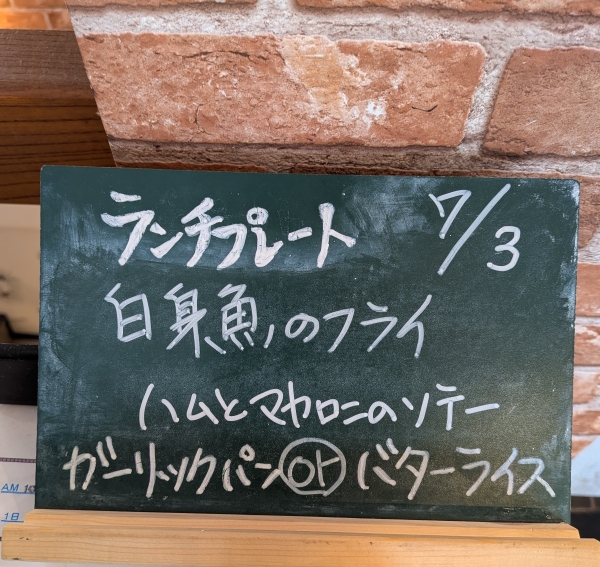 ランチプレート 7/3
白身魚のフライ
ハムとマカロニのソテー
ガーリックパン or バターライス
AM
1日